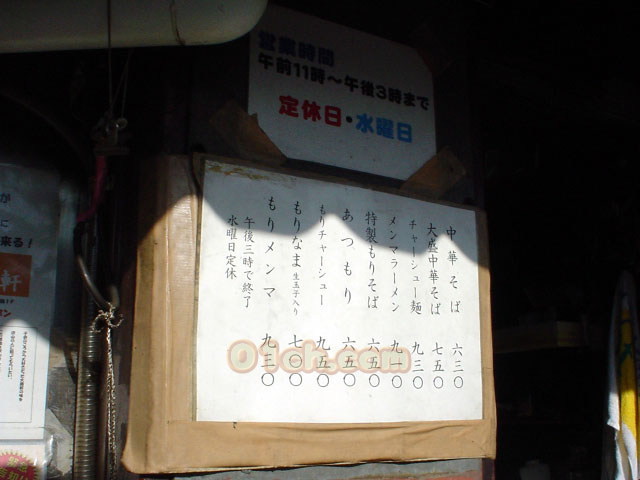 営業時間
午前11時～午後3時まで
定休日・水曜日
中華そば 六三〇
大盛中華そば 七五〇
チャーシュー麺 九三〇
メンマラーメン 九一〇
特製もりそば 六五〇
あつもり 六五〇
もりチャーシュー 九五〇
もりなま 生玉子入り 七〇〇
もりメンマ 九三〇
午後三時で終了
水曜日定休
が
に
来る！
軒